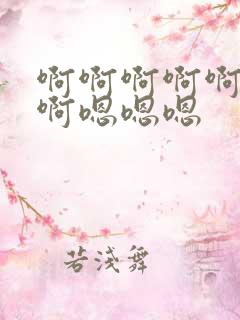 啊啊啊啊啊
啊嗯嗯嗯
若浅舞